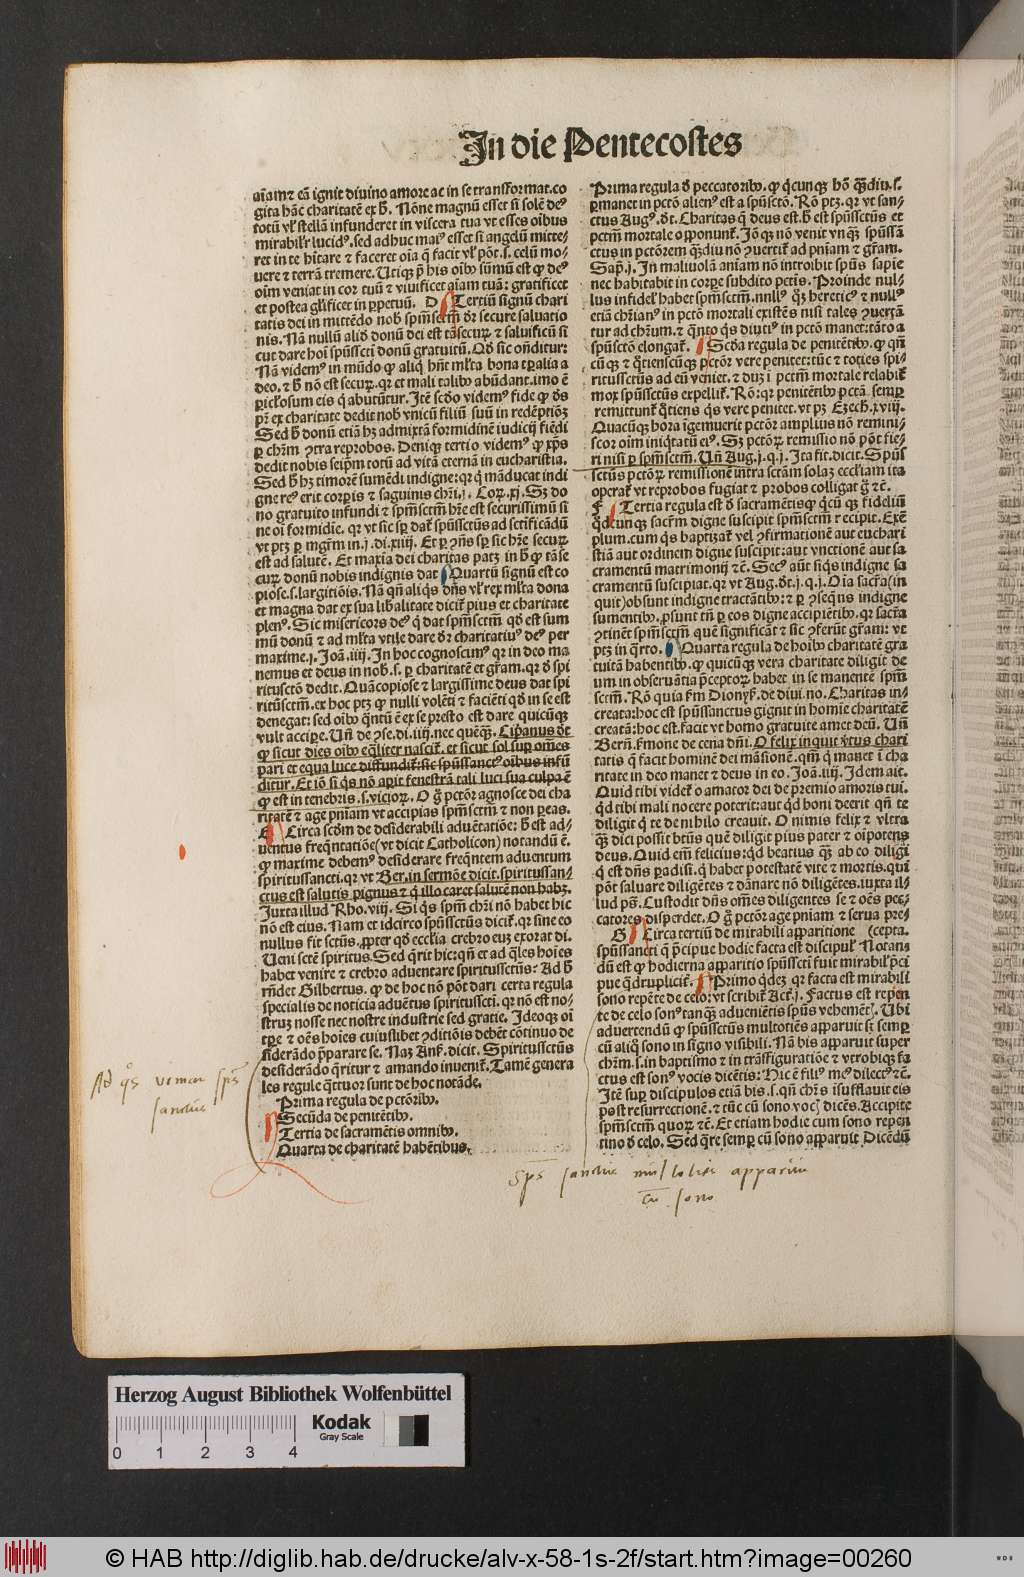 In die Pentecostes
aīamꝫ eā ignit diuino amore ac in se transformat. co
gita hāc charitatē ex ħ. Nōne magnū esset si solē deꝰ
totū vĺ stellā infunderet in viscera tua vt esses oībus
mirabilr̄ lucidꝰ. sed adhuc maiꝰ esset si angelū mitte-
ret in te hītare
et faceret oīa q̄ facit vĺ pōt. s. celū mo-
uere ⁊ terrā tremere.
oīm veniat in cor tuū ⁊ viuificet aīam tuā: gratificet
et postea gl̄ificet in ꝑpetuū. D Tertiū signū chari
tatis dei in mittēdo nob̄ spm̄sctm̄ dr̄ secure saluatio
nis. Nā nullū aliđ donū dei est tā securꝫ ⁊ saluificū si
cut dare hoī spūssctī donū gratuitū. Qđ sic oñditur:
Nā videmꝰ in mūdo ꝙ aliq̄ hn̄t ml̄ta bona tꝑalia a
deo. ⁊ ħ nō est securꝫ. qꝛ et mali talibꝰ abūdant. imo ē
ꝑiculosum eis q̄ abutūtur. Itē scđo videmꝰ fide ꝙ dꝰs
pr̄ ex charitate dedit nob̄ vnicū filiū suū in redēptiōꝫ
Sed ħ donū etiā hꝫ admixtā formidinē iudicij fiēdi
ꝑ chm̄ ꝯtra reprobos. Deniqꝫ tertio videmꝰ ꝙ xp̄s
dedit nobis seipm̄ totū ad vitā eternā in eucharistia.
Sed ħ hꝫ timorē sumēdi indigne: qꝛ q̄ māducat indi
gne reꝰ erit corꝑis ⁊ saguinis chr̄i. j. Corꝫ. xj. Sꝫ do
no gratuito infundi ⁊ spm̄sctm̄ hr̄e est securissimū si
ne oī formidīe. qꝛ vt sic sꝑ dat̄ spūssctūs ad sctificādū
vt ptꝫ ꝑ mgr̄m in. j. di. xiiij. Et ꝑ ꝯn̄s sꝑ sic hr̄e securꝫ
est ad salutē. Et maxīa dei charitas patꝫ in ħ ꝙ tā se
curꝫ donū nobis indignis dat Quartū signū est co
piose. s. largitiōis. Nā qn̄ aliq̄s dn̄s vĺ rex ml̄ta dona
et magna dat ex sua lib̄alitate dicit̄ pius et charitate
plenꝰ. Sic misericors deꝰ q̄ dat spm̄sctm̄ qđ est sum
mū donū ⁊ ad ml̄ta vtile dare dr̄ charitatiuꝰ deꝰ per
maxime. j. Joā. iiij. In hoc cognoscimꝰ qꝛ in deo ma
nemus et deus in nob̄. s. ꝑ charitatē et gr̄am. qꝛ đ spi
ritusctō dedit. Quā copiose ⁊ largissime deus dat spi
ritūsctm̄. ex hoc ptꝫ ꝙ nulli volēti ⁊ faciēti qđ in se est
denegat: sed oībꝰ q̄ntū ē ex se presto est dare quicūqꝫ
vult accipe. Un̄ de ꝯse. di. iiij. nec quēqꝫ. Ciprianus dr̄
ꝙ sicut dies oībꝰ eq̄liter nascit̄. et sicut sol suꝑ omēs
pari et equa luce diffundit̄: sic spūssanctꝰ oībus infū
ditur. Et iō si q̄s nō aꝑit fenestrā tali luci sua culpa ē
ꝙ est in tenebris. s. vicioꝝ. O g̊ pctōr agnosce dei cha
ritatē ⁊ age pn̄iam vt accipias spm̄sctm̄ ⁊ non ꝑeas.
E Circa scđm de desiderabili aduētatiōe: ħ est ad-
uentus freq̄ntatiōe (vt dicit Catholicon) notandū ē.
ꝙ maxime debemꝰ desiderare freq̄ntem aduentum
spiritussancti. qꝛ vt Ber. in sermōe dicit. spiritussan-
ctus est salutis pignus ⁊ q̄ illo caret salutē non habꝫ.
Juxta illud Rho. viij. Si q̄s spm̄ chr̄i nō habet hic
nō est eius. Nam et idcirco spūssctūs dicit̄. qꝛ sine eo
nullus fit sctūs. ꝓpter qđ eccl̄ia crebro eūꝫ exorat di.
Ueni sctē spiritus. Sed q̄rit hic: qn̄ et ad q̄les hoīes
habet venire ⁊ crebro aduentare spiritussctūs: Ad ħ
rn̄det Gilbertus. ꝙ de hoc nō pōt dari certa regula
specialis de noticia aduētus spiritussctī. qꝛ nō est no-
strūꝫ nosse nec nostre industrie sed gratie. Ideoqꝫ oī
tꝑe ⁊ oēs hoīes cuiuslibet ꝯditiōis debēt cōtinuo de
siderādo p̄parare se. Naꝫ Anẜ. dicit. Spiritussctūs
desiderādo q̄ritur ⁊ amando inuenit̄. Tamē genera
les regule q̄ttuor sunt de hoc notāde.
Prima regula de pctōribꝰ.
Secūda de penitētibꝰ.
Tertia de sacramētis omnibꝰ.
Quarta de charitatē habētibus.
Prima regula đ peccatoribꝰ. ꝙ q̄cunqꝫ hō qꝫdiu. s.
ꝑmanet in pctō alienꝰ est a spūsctō. Rō ptꝫ. qꝛ vt san-
ctus Augꝰ. dt̄. Charitas q̄ deus est. ħ est spūssctūs et
pctm̄ mortale opponunt̄. Jō qꝫ nō venit vnqꝫ spūssā
ctus in pctōrem qꝫdiu nō ꝯuertit̄ ad pn̄iam ⁊ gr̄am.
Sap̄. j. In maliuolā aniam nō introibit spūs sapīe
nec habitabit in corꝑe subdito pctis. Proinde nul-
lus infidel̄ habet spm̄sctm̄. nullꝰ q̊ꝫ hereticꝰ ⁊ nullꝰ
etiā chr̄ianꝰ in pctō mortali existēs nisi tales ꝯuertā
tur ad chr̄um. ⁊ q̄nto q̄s diutiꝰ in pctō manet: tāto a
spūsctō elongat̄. Scđa regula de penitētibꝰ. ꝙ qn̄
cūqꝫ ⁊ q̊tienscūqꝫ pctōr vere penitet: tūc ⁊ toties spi-
ritussctūs ad eū veniet. ⁊ dūꝫ ī pctm̄ mortale relabit̄
mox spūssctūs expellit̄. Rō: qꝛ penitētibꝰ pctā semꝑ
remittunt̄ q̊tiens q̄s vere penitet. vt pꝫ Ezech. xviij.
Quacūqꝫ hora īgemuerit pctōr amplius nō remini-
scor oīm iniq̄tatū eiꝰ. Sꝫ pctōꝝ remissio nō pōt fie-
ri nisi ꝑ spm̄sctm̄. Un̄ Aug. j. q. j. Ita fit. dicit. Spūs
sctūs pctōꝝ remissionē intra sctām solaꝫ eccl̄iam ita
operat̄ vt reprobos fugiat ⁊ probos colligat g̊ ⁊c̄.
F Tertia regula est đ sacramētis ꝙ q̄cūqꝫ fideliū
q̄dcunqꝫ sacr̄m digne suscipit spm̄sctm̄ recipit. Exē
plum. cum q̄s baptizat̄ vel ꝯfirmationē aut euchari
stiā aut ordinem digne suscipit: aut vnctionē aut sa
cramentū matrimonij ⁊c̄. Secꝰ aūt si q̄s indigne sa
cramentū suscipiat. qꝛ vt Aug. dt̄. j. q. j. Oīa sacr̄a (in
quit) obsunt indigne tractātibꝰ: ⁊ ꝑ ꝯseq̄ns indigne
sumentibꝰ. ꝓsunt tn̄ ꝑ eos digne accipiētibꝰ. qꝛ sacr̄a
ꝯtinēt spm̄sctm̄ quē significāt ⁊ sic ꝯferūt gr̄am: vt
ptꝫ in q̄rto. Quarta regula de hoībꝰ charitatē gra
tuitā habentibꝰ. ꝙ quicūqꝫ vera charitate diligit de
um in obseruātia p̄ceptoꝝ habet in se manentē spm̄
sctm̄. Rō quia ẜm Dionyẜ. de diui. no. Charitas in-
creata: hoc est spūssanctus gignit in homīe charitatē
creatā: hoc est. facit vt homo gratuite amet deū. Un̄
Bern̄. ẜmone de cena dn̄i. O felix inquit vtus chari
tatis q̄ facit hominē dei māsionē. qm̄ q̄ manet ī cha
ritate in deo manet ⁊ deus in eo. Joā. iiij. Idem ait.
Quid tibi videt̄ o amator dei de premio amoris tui.
q̄d tibi mali nocere poterit: aut q̄d boni deerit qn̄ te
diligit q̄ te de nihilo creauit. O nimis felix ⁊ vltra
qꝫ dici possit btūs quē diligit pius pater ⁊ oīpotens
deus. Quid em̄ felicius: q̄d beatius qꝫ ab eo diligi
q̄ est dn̄s ꝑadisi. q̄ habet potestatē vite ⁊ mortis. qui
pōt saluare diligētes ⁊ dānare nō diligētes. iuxta il-
lud ps̄. Custodit dn̄s om̄es diligentes se ⁊ oēs pec-
catores disperdet. O g̊ pctōr age pn̄iam ⁊ serua pre
G Circa tertiū de mirabili apparitione (cepta.
spūssancti q̄ p̄cipue hodie facta est discipul̄. Notan-
dū est ꝙ hodierna apparitio spūssctī fuit mirabil̄ p̄ci
pue q̄druplicit̄. Primo q̊dē qꝛ facta est mirabili
sono repēte de celo: vt scribit̄ Act̄. j. Factus est repen
te de celo sonꝰ tanqꝫ aduenientis spūs vehemēt̄. Ubi
aduertendū ꝙ spūssctūs multotiēs apparuit sꝫ semꝑ
cū aliq̄ sono in signo visibili. Nā his apparuit super
chr̄m. s. in baptismo ⁊ in trāsfiguratiōe ⁊ vtrobiqꝫ fa
ctus est sonꝰ vocis dicētis: Hic ē filiꝰ meꝰ dilectꝰ ⁊c̄.
Itē suꝑ discipulos etiā bis. s. qn̄ chrs̄ īsufflauit eis
post resurrectionē. ⁊ tūc cū sono vocꝭ dicēs. Accipite
spm̄sctm̄ quoꝝ ⁊c̄. Et etiam hodie cum sono repen
tino đ celo. Sed q̄re semꝑ cū sono apparuit Dicēdū
Ad q̊s veniat spūs
sanctus
Spūs sanctus multoties apparuit
cū sono
Herzog August Bibliothek Wolfenbüttel
0 1 2 3 4
Kodak
Gray Scale
© HAB http://diglib.hab.de/drucke/alv-x-58-1s-2f/start.htm?image=00260